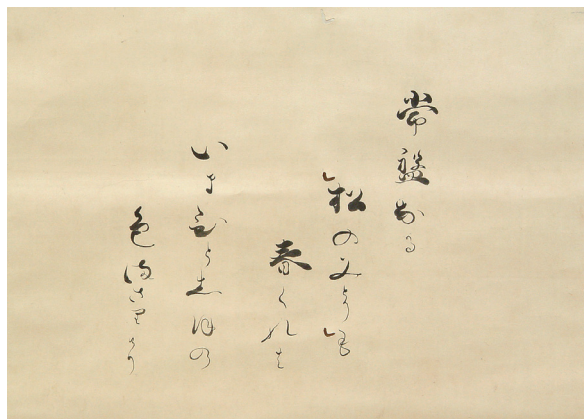 常盤なる
松のみとりも
春くれは
いまひとしほの
色まさりけり